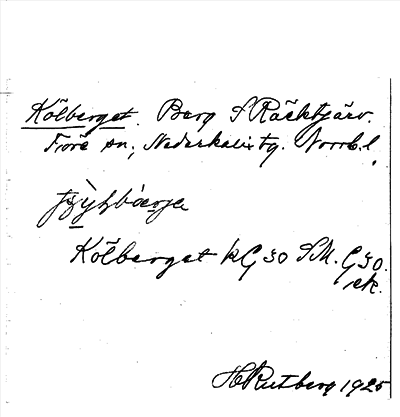 Kölberget. Berg S Räktjärv.
Töre sn; Nederkalix tg. Norrb. l.
Kölberget kG 30 SM. G 30.
ek.
H Rutberg 1925